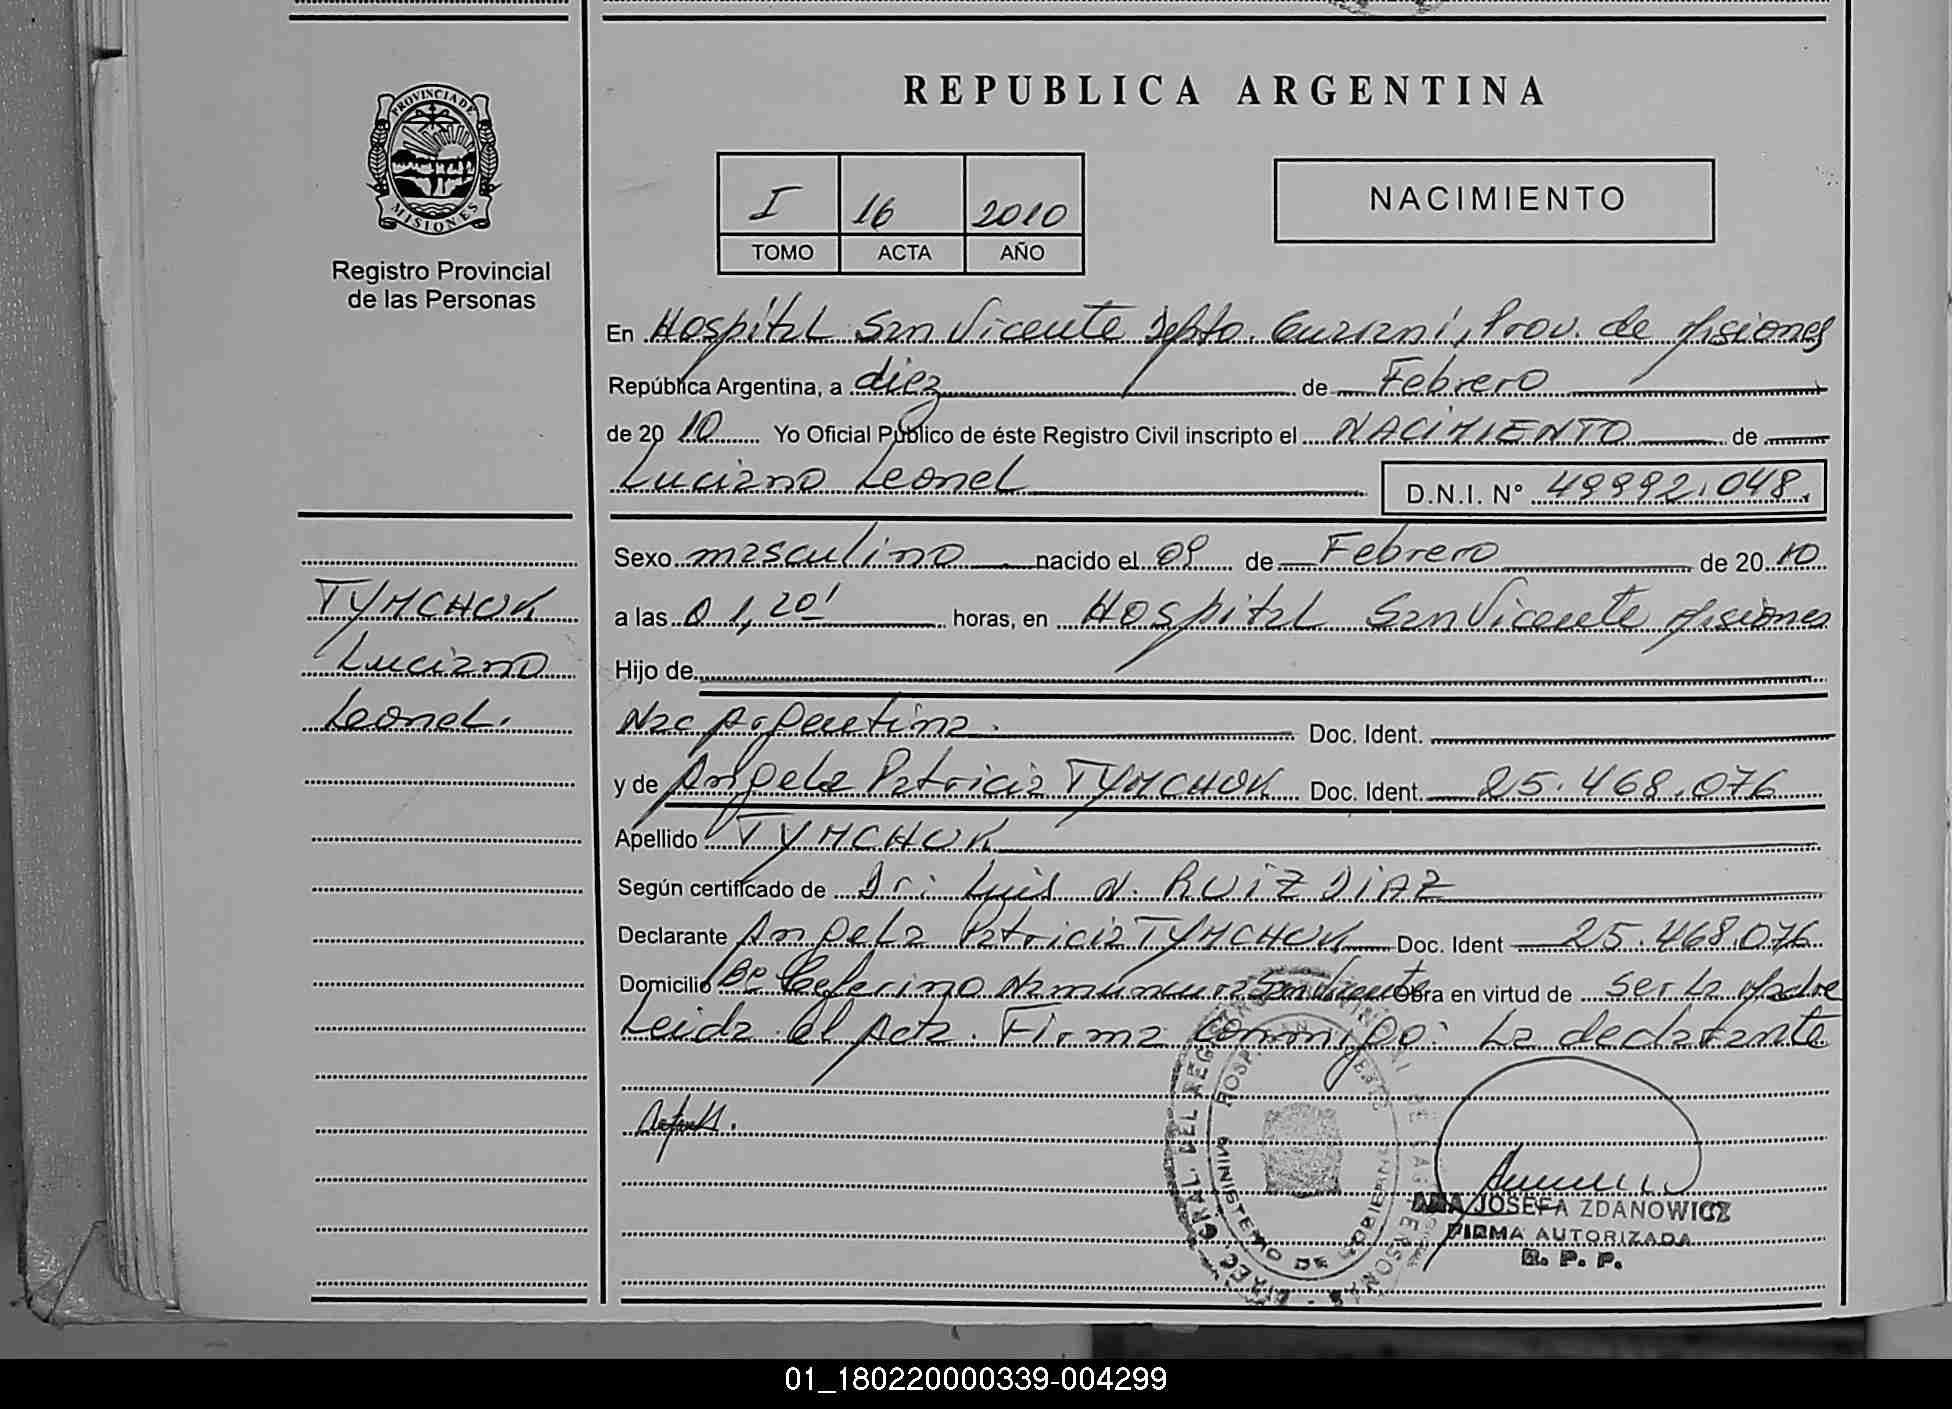 REPUBLICA ARGENTINA
PROVINCIA DE
MISIONES
Registro Provincial
de las Personas
I 16 2010
TOMO ACTA AÑO
NACIMIENTO
En Hospital San Vicente Depto. Guarani, Prov. de Misiones
República Argentina, a diez de Febrero
de 2010 Yo Oficial Público de éste Registro Civil inscripto el NACIMIENTO de
Luciano Leonel D.N.I. N° 49992.048.
Sexo masculino nacido el 09 de Febrero de 2010
TYMCHUK
Luciano
Leonel.
a las 01,20' horas, en Hospital San Vicente Misiones
Hijo de
Nac Argentina. Doc. Ident.
y de Angela Patricia TYMCHUK Doc. Ident. 25.468.076
Apellido TYMCHUK
Según certificado de Dr: Luis N. RUIZ DIAZ
Declarante Angela Patricia TYMCHUK Doc. Ident 25.468.076
Domicilio Bº Ceferino Namuncura San Vicente Obra en virtud de ser la Madre
Leida el Acta. Firma conmigo: La declarante
DIREC. GRAL. DEL REG DE LAS PERSONAS
MINISTERIO DE GOBIERNO
ANA JOSEFA ZDANOWICZ
FIRMA AUTORIZADA
R. P. P.
01_180220000339-004299